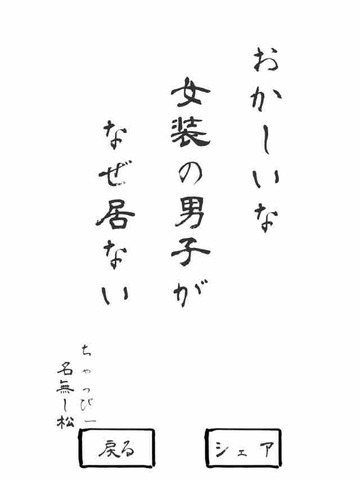 おかしいな
女装の男子が
なぜ居ない
ちゃっぴー
名無し松
戻る
シェア